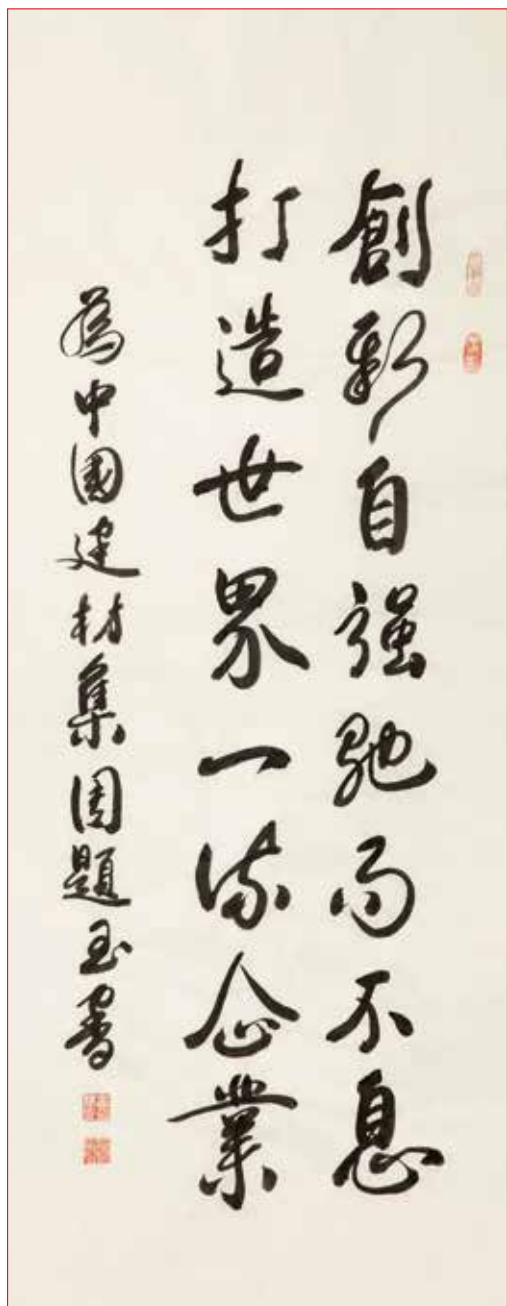 創新自強馳而不息
打造世界一流企業
為中國建材集團題玉書